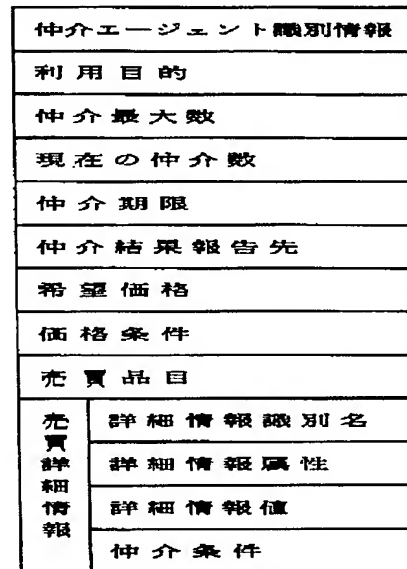 仲介エージェント識別情報
利用目的
仲介最大数
現在の仲介数
仲介期限
仲介結果報告先
希望価格
価格条件
売買品目
売買詳細情報
詳細情報識別名
詳細情報属性
詳細情報値
仲介条件